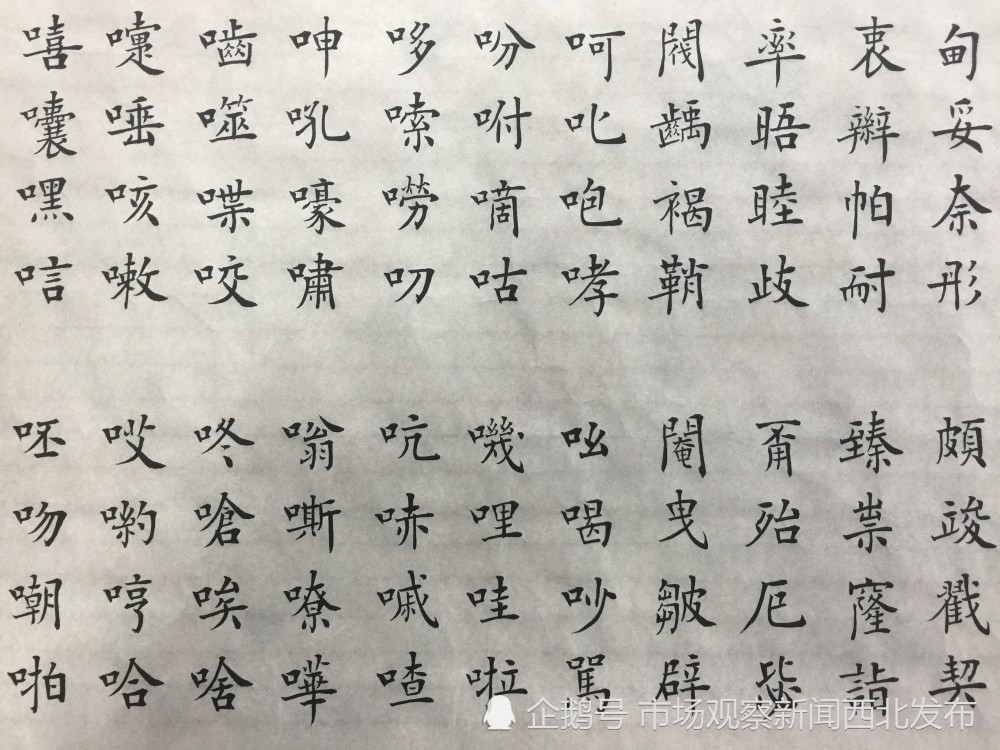 甸妥奈形
衷辦帕耐
率晤睦歧
閥齲褐鞘
呵叱咆哮
吩咐嘀咕
哆嗦嘮叨
呻吼嚎嘯
嚙噬喋咬
嚏唾咳嗽
嘻囔嘿唁
頗竣戳契
臻祟窿詣
甭殆厄
閹曳皺辟
吆喝吵罵
嘰哩哇啦
吭哧嘁喳
嗡嘶嘹嘩
咚嗆唉啥
哎喲哼哈
呸吻嘲啪
企鹅号 市场观察新闻西北发布